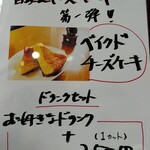 第一弾!
ベイクド
チーズケーキ
ドリンクセット
お好きなドリンク
+
(1カット)